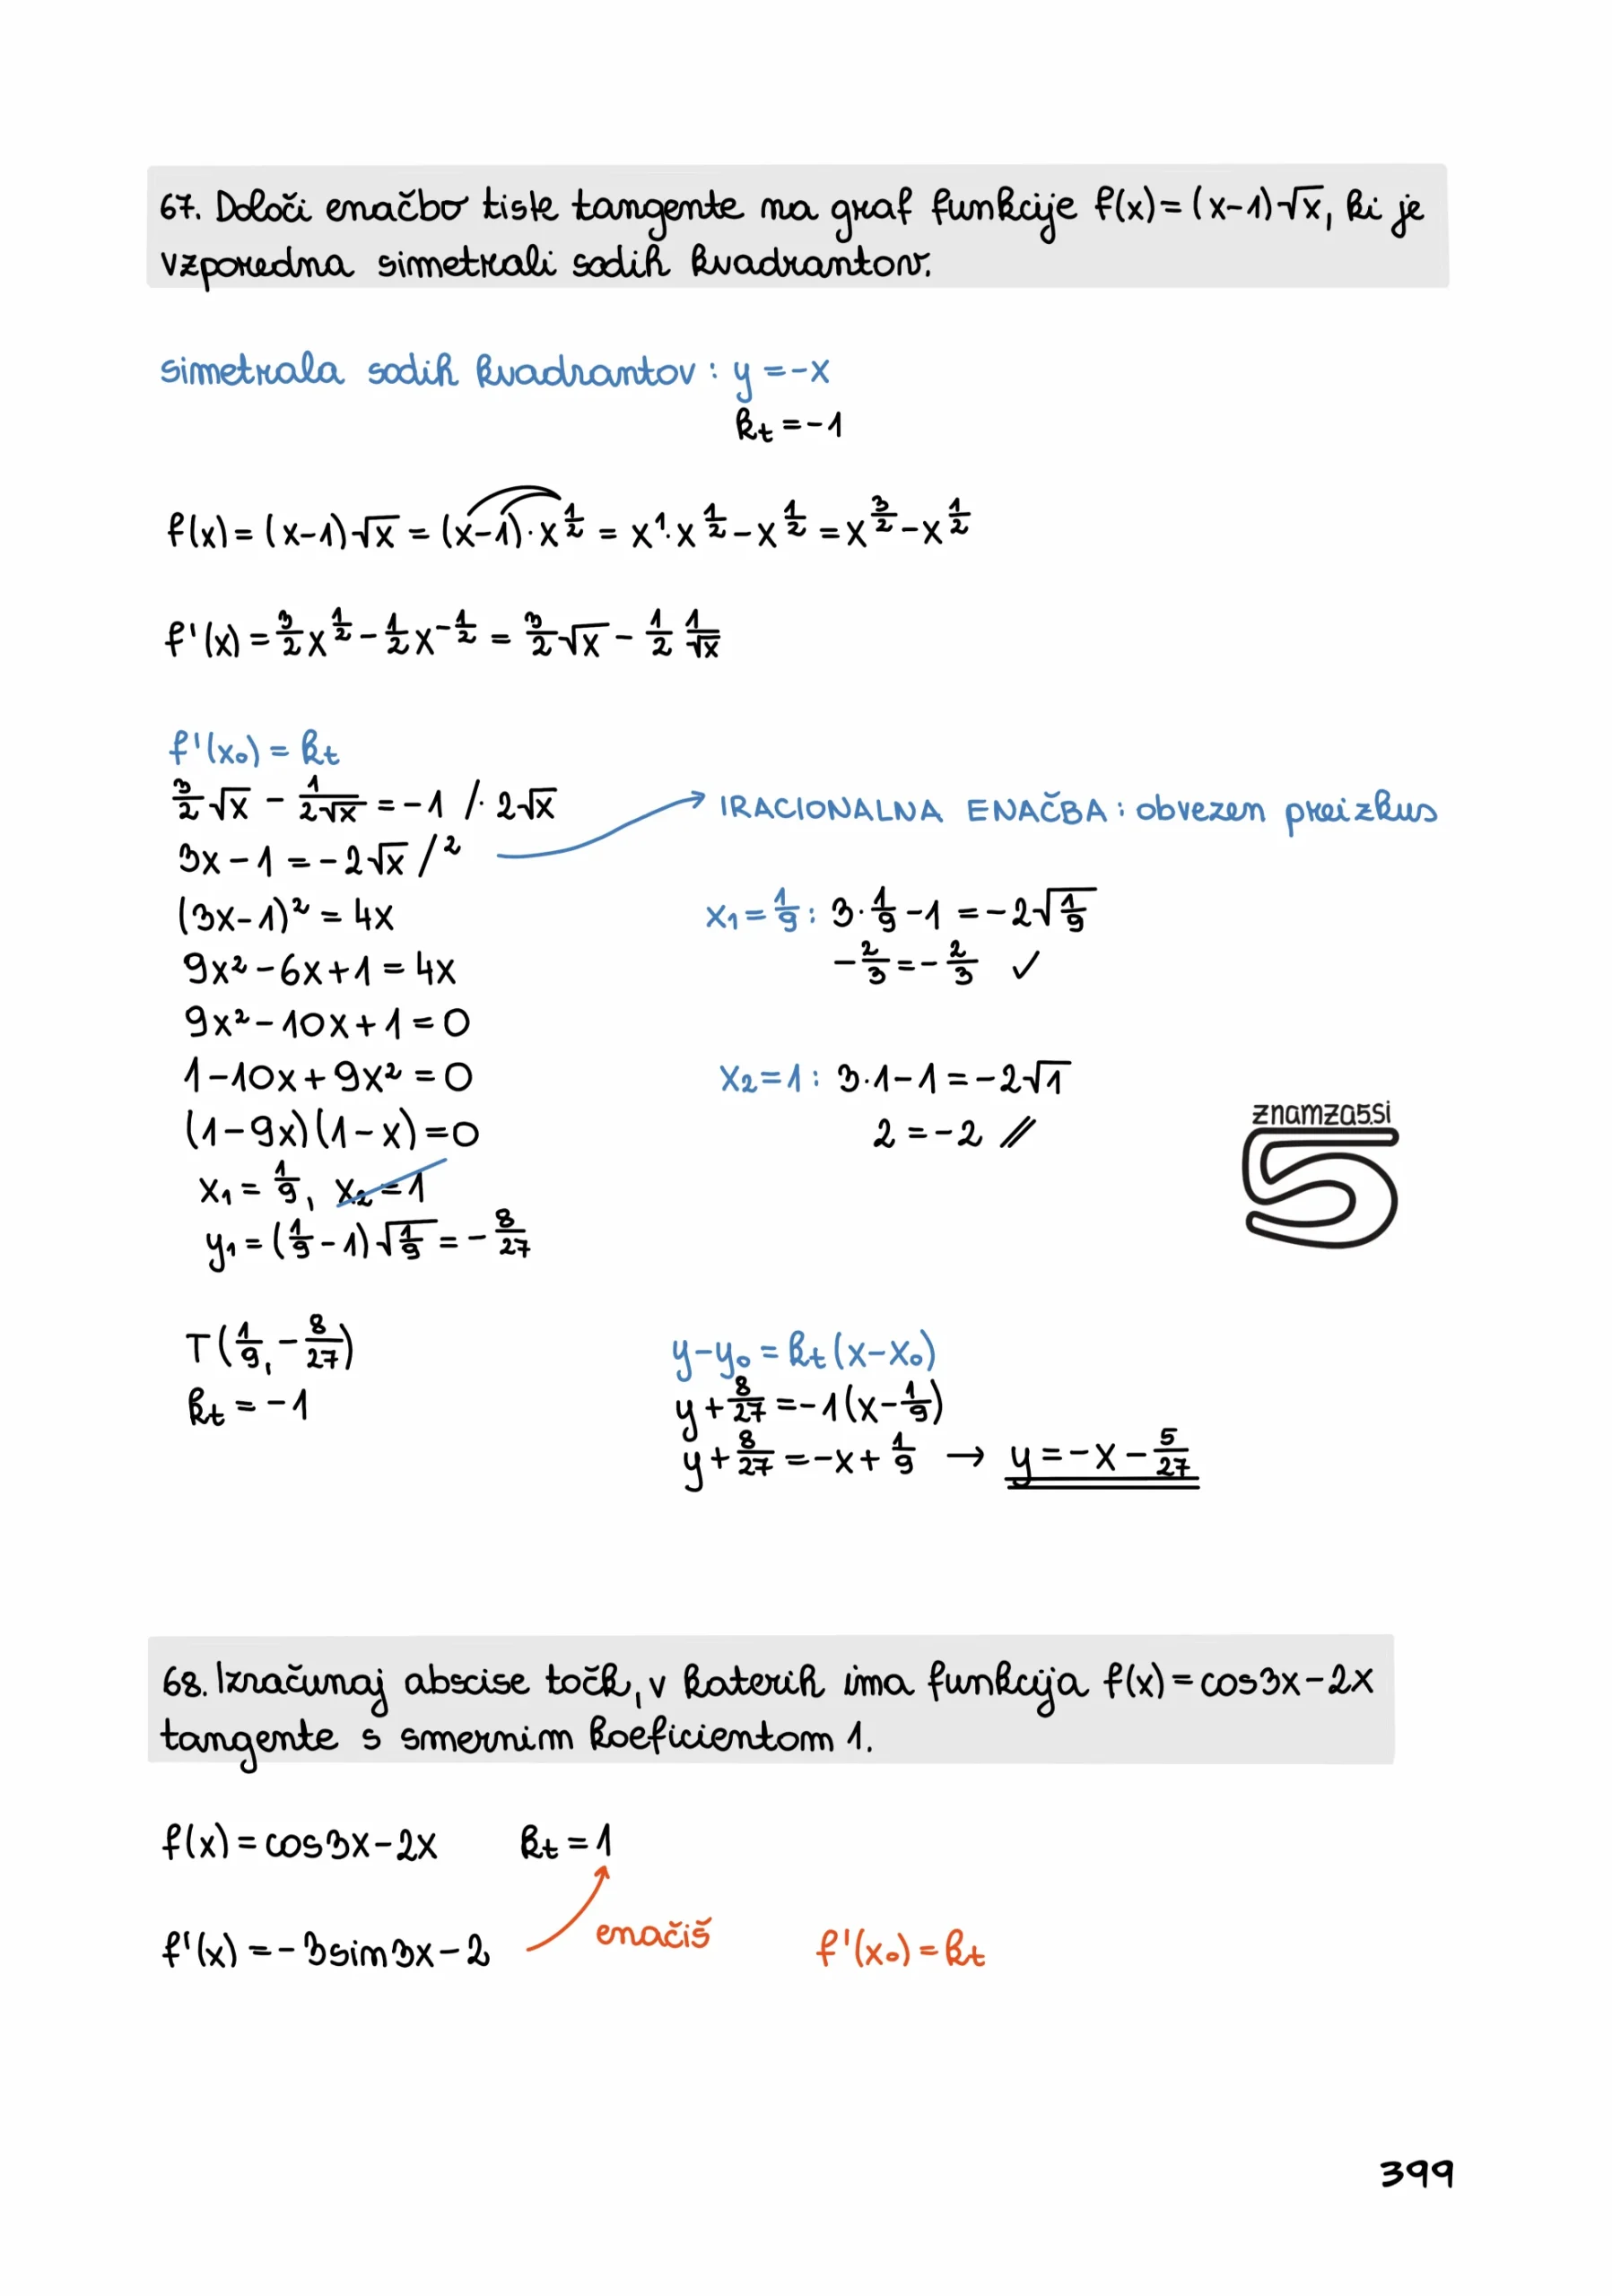 67. Določi enačbo tiste tangente na graf funkcije f(x) = (x-1)√x, ki je
vzporedna simetrali sodih kvadrantov.
simetrala sodih kvadrantov: y = -x
kt = -1
f(x) = (x-1)√x = (x-1)·x^(1/2) = x^1·x^(1/2) - x^(1/2) = x^(3/2) - x^(1/2)
f'(x) = 3/2 x^(1/2) - 1/2 x^(-1/2) = 3/2 √x - 1/2 1/√x
f'(x₀) = kt
3/2 √x - 1/(2√x) = -1 /· 2√x
3x - 1 = -2√x /²
(3x-1)² = 4x
9x² - 6x + 1 = 4x
9x² - 10x + 1 = 0
1 - 10x + 9x² = 0
(1-9x)(1-x) = 0
x₁ = 1/9, x₂ = 1
y₁ = (1/9 - 1)√(1/9) = -8/27
IRACIONALNA ENAČBA: obvezen preizkus
x₁ = 1/9: 3·1/9 - 1 = -2√(1/9)
-2/3 = -2/3 ✓
x₂ = 1: 3·1 - 1 = -2√1
2 = -2 //
znamza5.si
5
T(1/9, -8/27)
kt = -1
y - y₀ = kt(x - x₀)
y + 8/27 = -1(x - 1/9)
y + 8/27 = -x + 1/9 → y = -x - 5/27
68. Izračunaj abscise točk, v katerih ima funkcija f(x) = cos3x - 2x
tangente s smernim koeficientom 1.
f(x) = cos3x - 2x kt = 1
f'(x) = -3sin3x - 2 enačiš f'(x₀) = kt
399